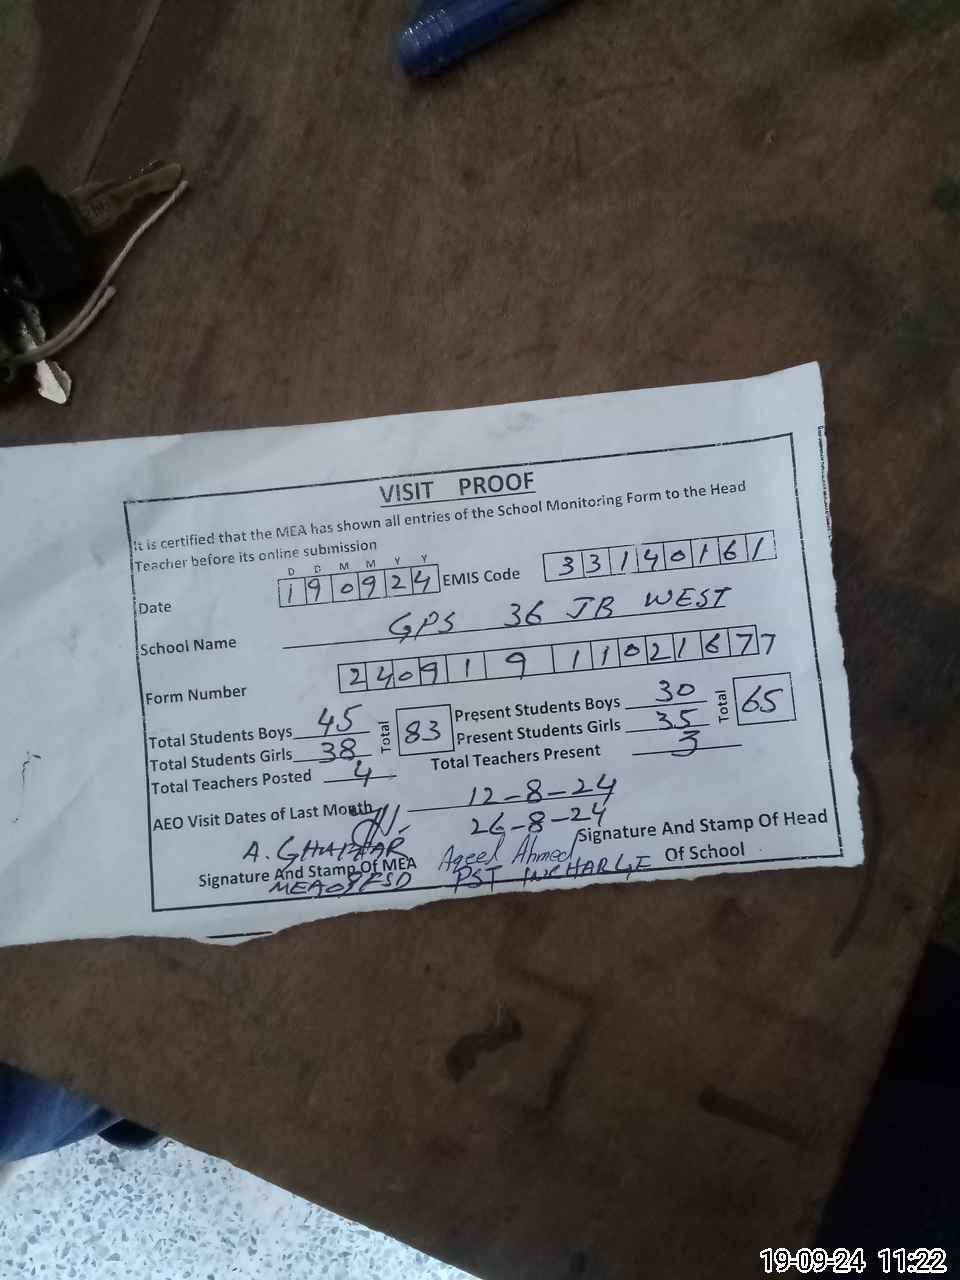 VISIT PROOF
It is certified that the MEA has shown all entries of the School Monitoring Form to the Head
Teacher before its online submission
D D M M Y Y
Date 190924 EMIS Code 33140161
School Name GPS 36 JB WEST
Form Number 24091911021677
Total Students Boys 45 Total 83 Present Students Boys 30 Total 65
Total Students Girls 38 Present Students Girls 35
Total Teachers Posted 4 Total Teachers Present 3
AEO Visit Dates of Last Month 12-8-24
26-8-24
A. GHAFFAR Aqeel Ahmed Signature And Stamp Of Head
Signature And Stamp Of MEA PST INCHARGE Of School
19-09-24 11:22